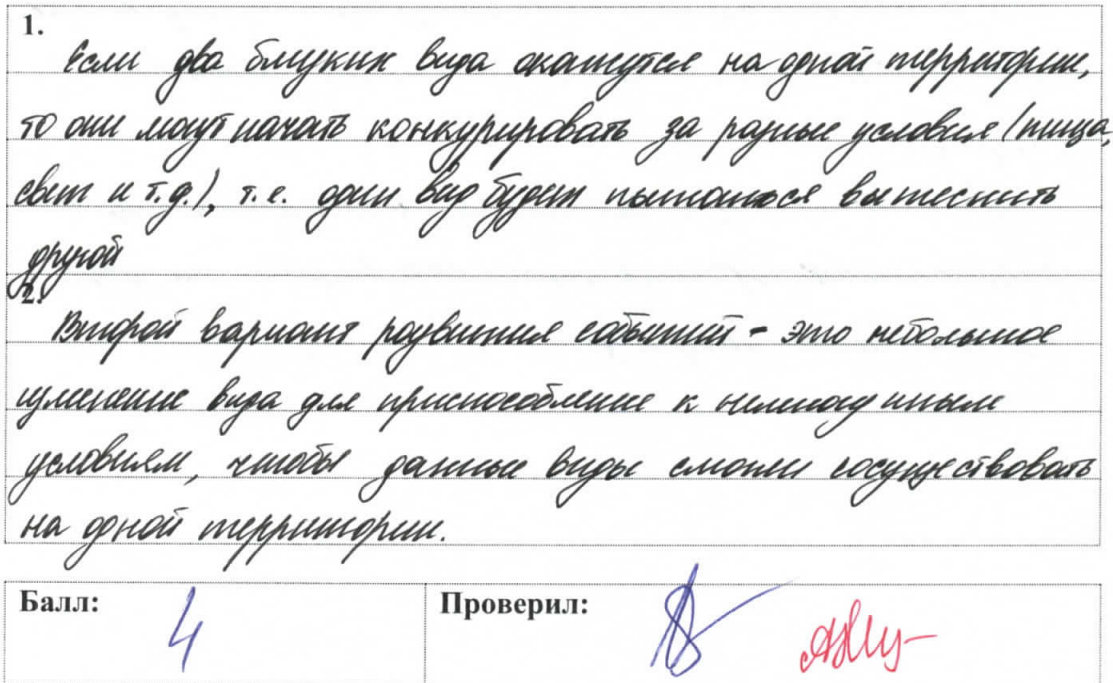 1.
Если два близких вида окажутся на одной территории,
то они могут начать конкурировать за разные условия (пища,
свет и т.д.), т.е. один вид будет пытаться вытеснить
другой
2.
Второй вариант развития событий - это небольшое
изменение вида для приспособление к немного иным
условиям, чтобы данные виды смогли сосуществовать
на одной территории.
Балл: 4 Проверил: